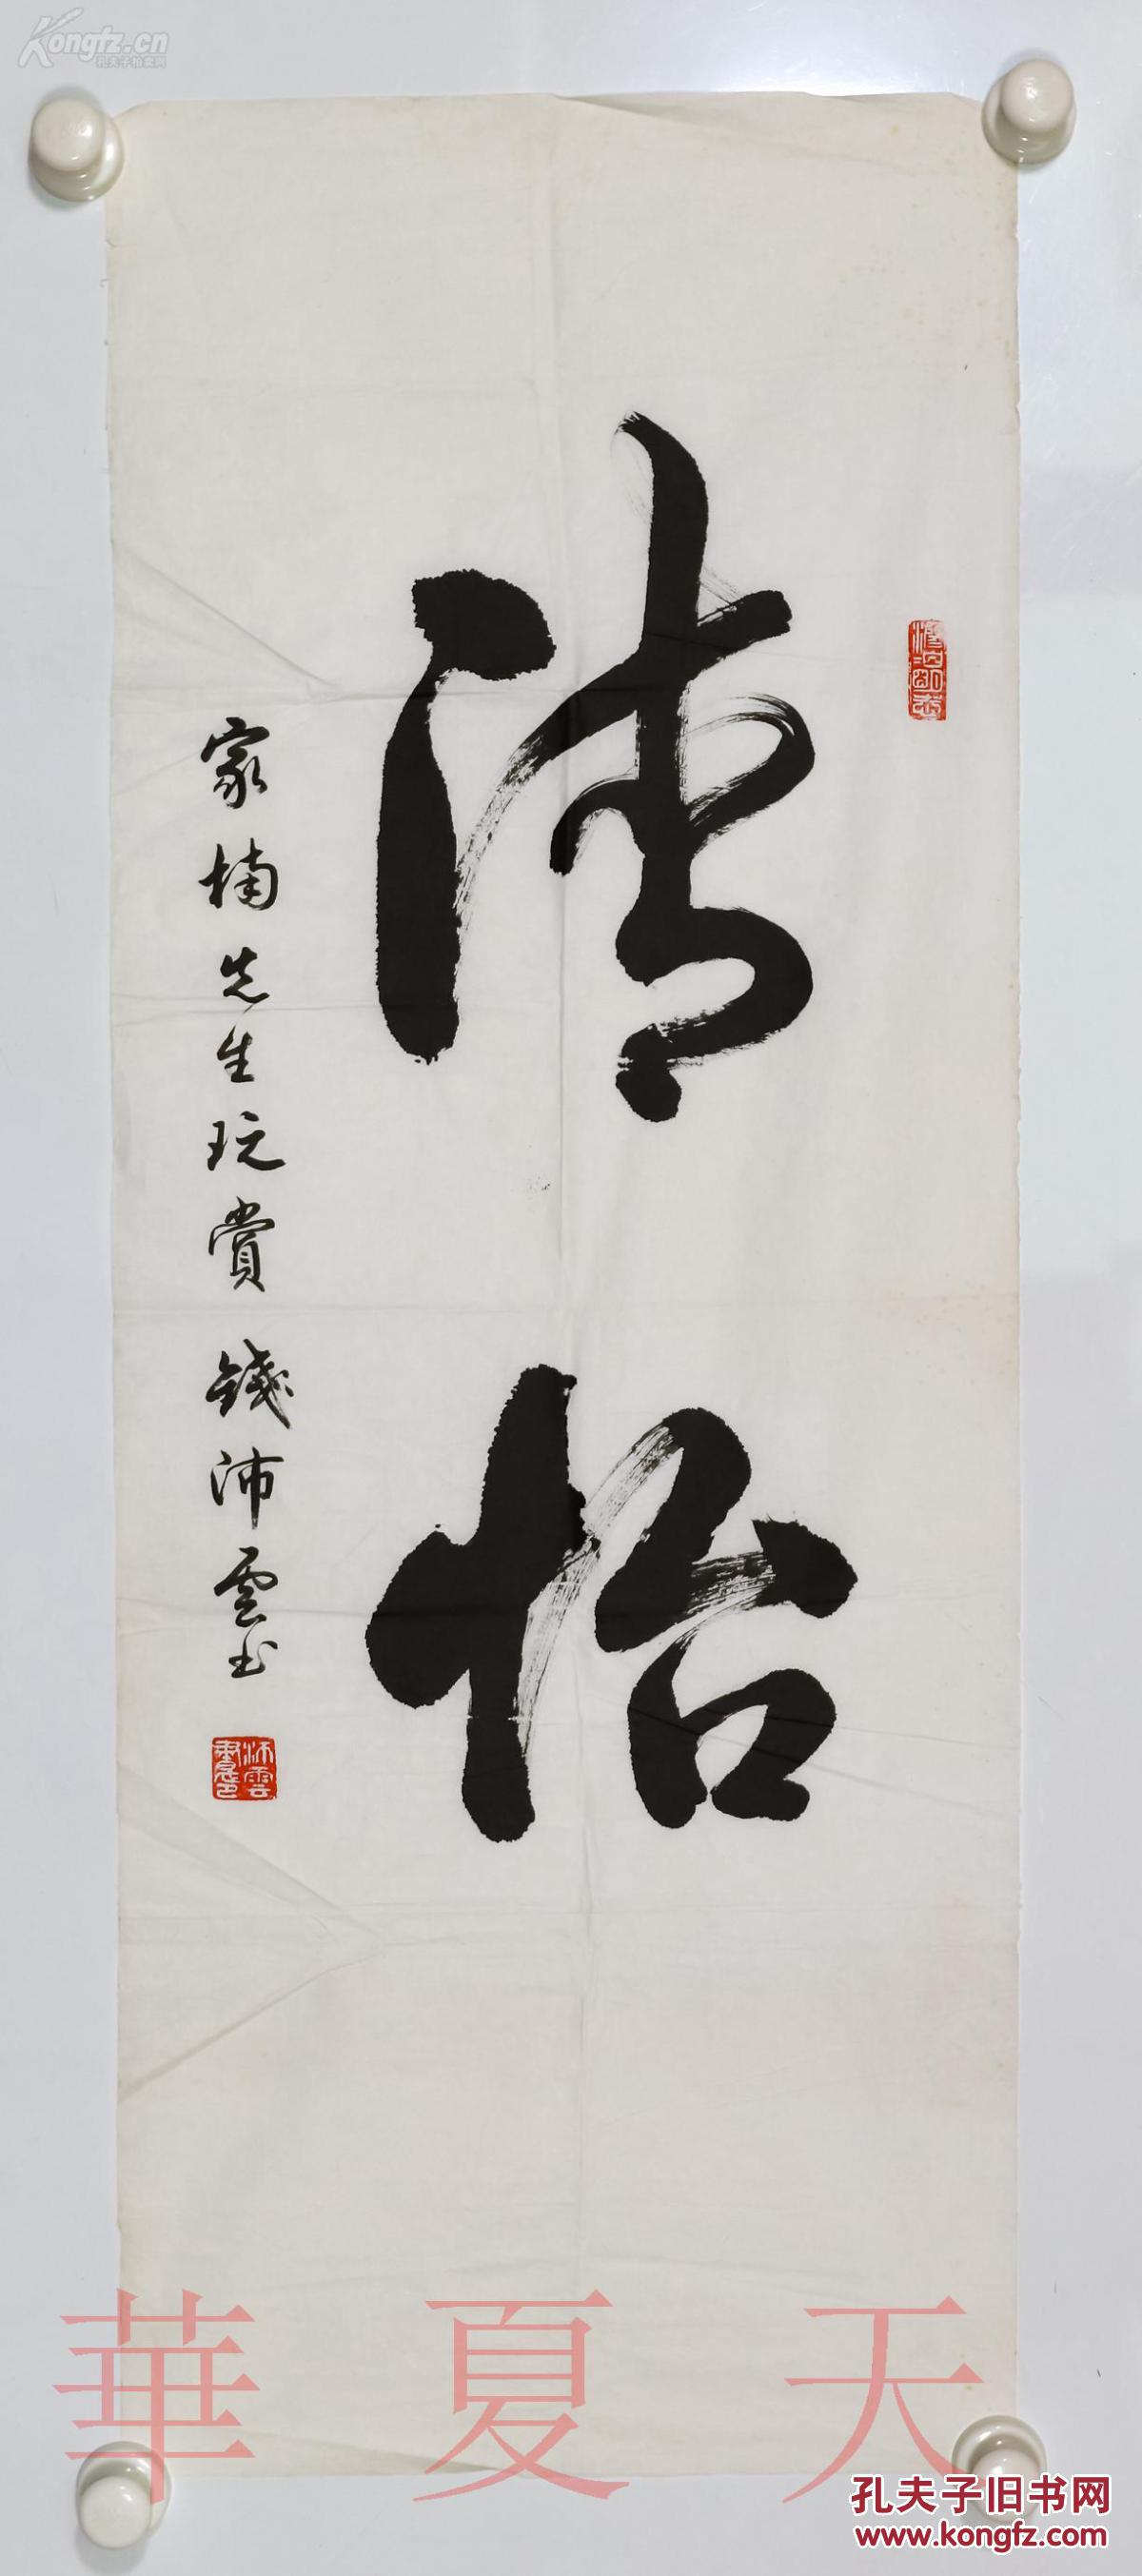 Kongfz.cn
孔夫子拍卖网
清
怡
家楠先生玩赏 錢沛雲书
沛雲書印
華夏天
孔夫子旧书网
www.kongfz.com